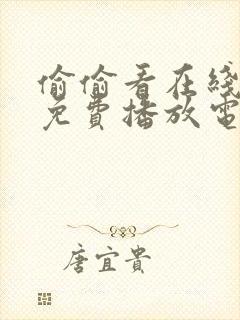 偷偷看在綫
免費播放電
唐宜貴